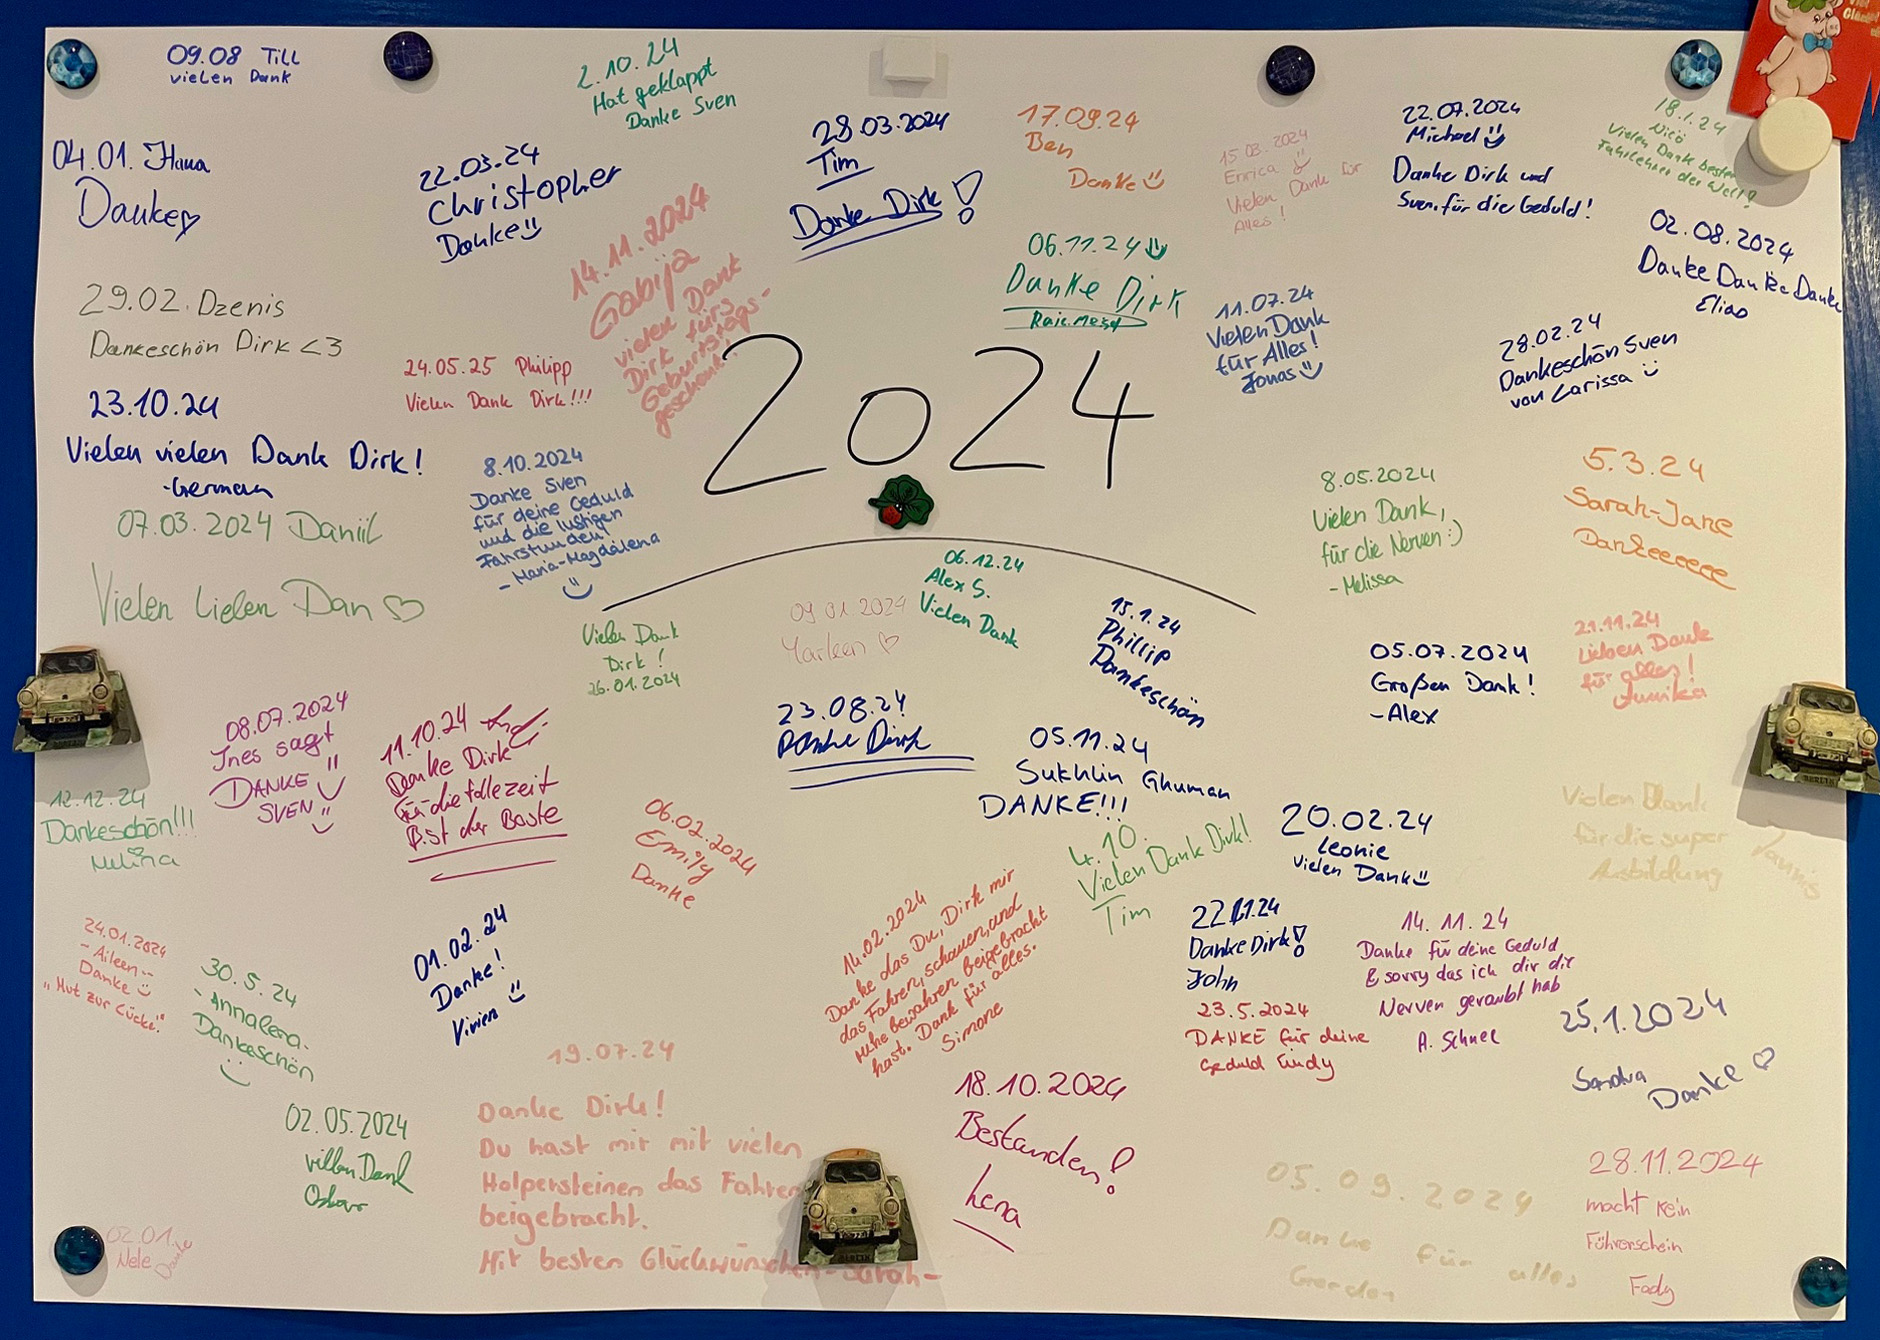 09.08 Till
vielen Dank
2.10.24
Hat geklappt
Danke Sven
04.01.
Danke♡
22.03.24
Christopher
Danke
28.03.2024
Tim
Danke Dirk!
17.09.24
Ben
Danke
15.03.2024
Enrica
Vielen Dank für
Alles!
22.07.2024
Michael
Danke Dirk und
Sven, für die Geduld!
18.1.24
Nico
Vielen Dank bester
Fahrlehrer der Welt!
02.08.2024
Danke Danke Danke
Elias
14.11.2024
Gabija
vielen Dank
Dirk fürs
Geburtstags-
geschenk!
06.11.24
Danke Dirk
29.02. Dzenis
Dankeschön Dirk <3
11.07.24
Vielen Dank
für Alles!
Jonas
28.02.24
Dankeschön Sven
von Larissa
24.05.25 Philipp
Vielen Dank Dirk!!!
2024
23.10.24
Vielen vielen Dank Dirk!
-German
8.10.2024
Danke Sven
für deine Geduld
und die lustigen
Fahrstunden!
- Maria-Magdalena
8.05.2024
Vielen Dank,
für die Nerven :)
- Melissa
5.3.24
Sarah-Jane
Dankeeeeee
07.03.2024 Daniil
Vielen Lielen Dan♡
06.12.24
Alex S.
Vielen Dank
09.01.2024
Marleen ♡
15.1.24
Phillip
Dankeschön
Vielen Dank
Dirk!
26.01.2024
05.07.2024
Großen Dank!
-Alex
21.11.24
Lieben Dank
für alles!
Annika
08.07.2024
Ines sagt
DANKE
SVEN
11.10.24
Danke Dirk
für die tolle zeit
Bist der Beste
23.08.24
Danke Dirk
05.11.24
Sukhlin Ghuman
DANKE!!!
12.12.24
Dankeschön!!!
Melina
06.02.2024
Emily
Danke
4.10.
Vielen Dank Dirk!
Tim
20.02.24
Leonie
Vielen Dank
Vielen Dank
für die super
Ausbildung
Jannis
24.01.2024
- Aileen -
Danke
"Mut zur Lücke!"
30.5.24
- Annalena -
Dankeschön
01.02.24
Danke!
Vivien
14.02.2024
Danke das Du, Dirk mir
das Fahren, schauen, und
ruhe bewahren beigebracht
hast. Dank für alles.
Simone
22.11.24
Danke Dirk!
John
14.11.24
Danke für deine Geduld
& sorry das ich dir die
Nerven geraubt hab
A. Schnel
23.5.2024
DANKE für deine
Geduld
25.1.2024
Sandra
Danke ♡
02.05.2024
Dank
19.07.24
Danke Dirk!
Du hast mir mit vielen
Holpersteinen das Fahren
beigebracht.
Mit besten Glückwünschen -Sarah-
18.10.2024
Bestanden!
Lena
05.09.2024
Danke für alles
28.11.2024
macht kein
Führerschein
Fady
02.01.
Nele Danke